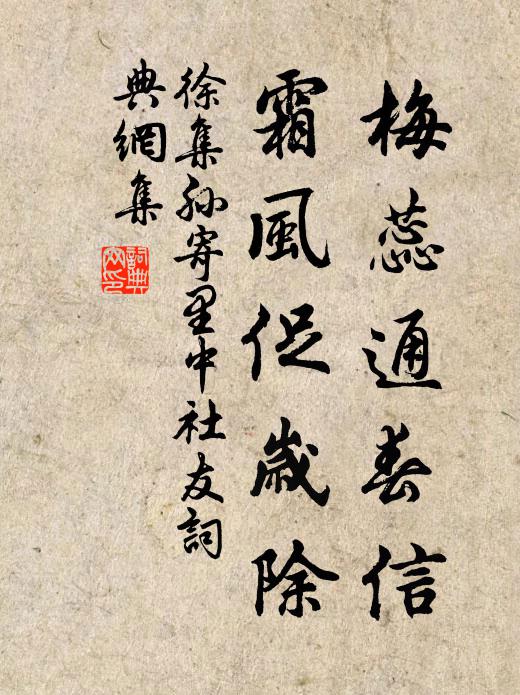 梅蕊通春信
霜風促歲除
徐集孫寄里中社友詞
典網集
詞典